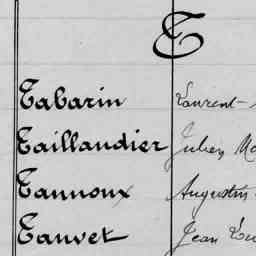 T
Tabarin Laurent
Taillandier Julien
Tannoux Augustin
Tauvet Jean